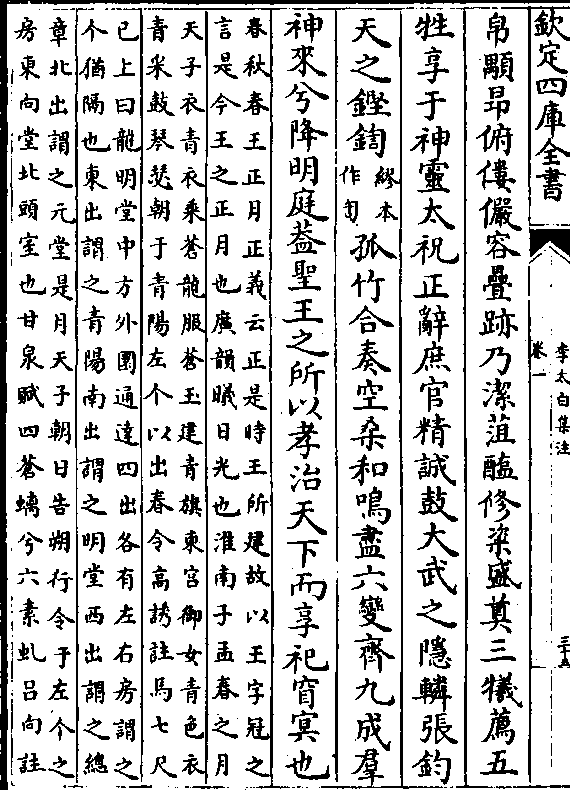 欽定四庫全書
李太白集注
卷一
三十五
帛顒昻俯僂儼容疊跡乃潔菹醢修粢盛奠三犧薦五
牲享于神靈太祝正辭庶官精誠鼓大武之隱轔張鈞
天之鏗鍧繆本作訇孤竹合奏空桑和鳴盡六變齊九成羣
神來兮降明庭葢聖王之所以孝治天下而享祀窅冥也
春秋春王正月正義云正是時王所建故以王字冠之
言是今王之正月也廣韻曦日光也淮南子孟春之月
天子衣青衣乘蒼龍服蒼玉建青旗東宫御女青色衣
青采鼓琴瑟朝于青陽左个以出春令高誘註馬七尺
已上曰龍明堂中方外圜通達四出各有左右房謂之
个猶隔也東出謂之青陽南出謂之明堂西出謂之總
章北出謂之元堂是月天子朝日告朔行令于左个之
房東向堂北頭室也甘泉賦四蒼螭兮六素虬吕向註